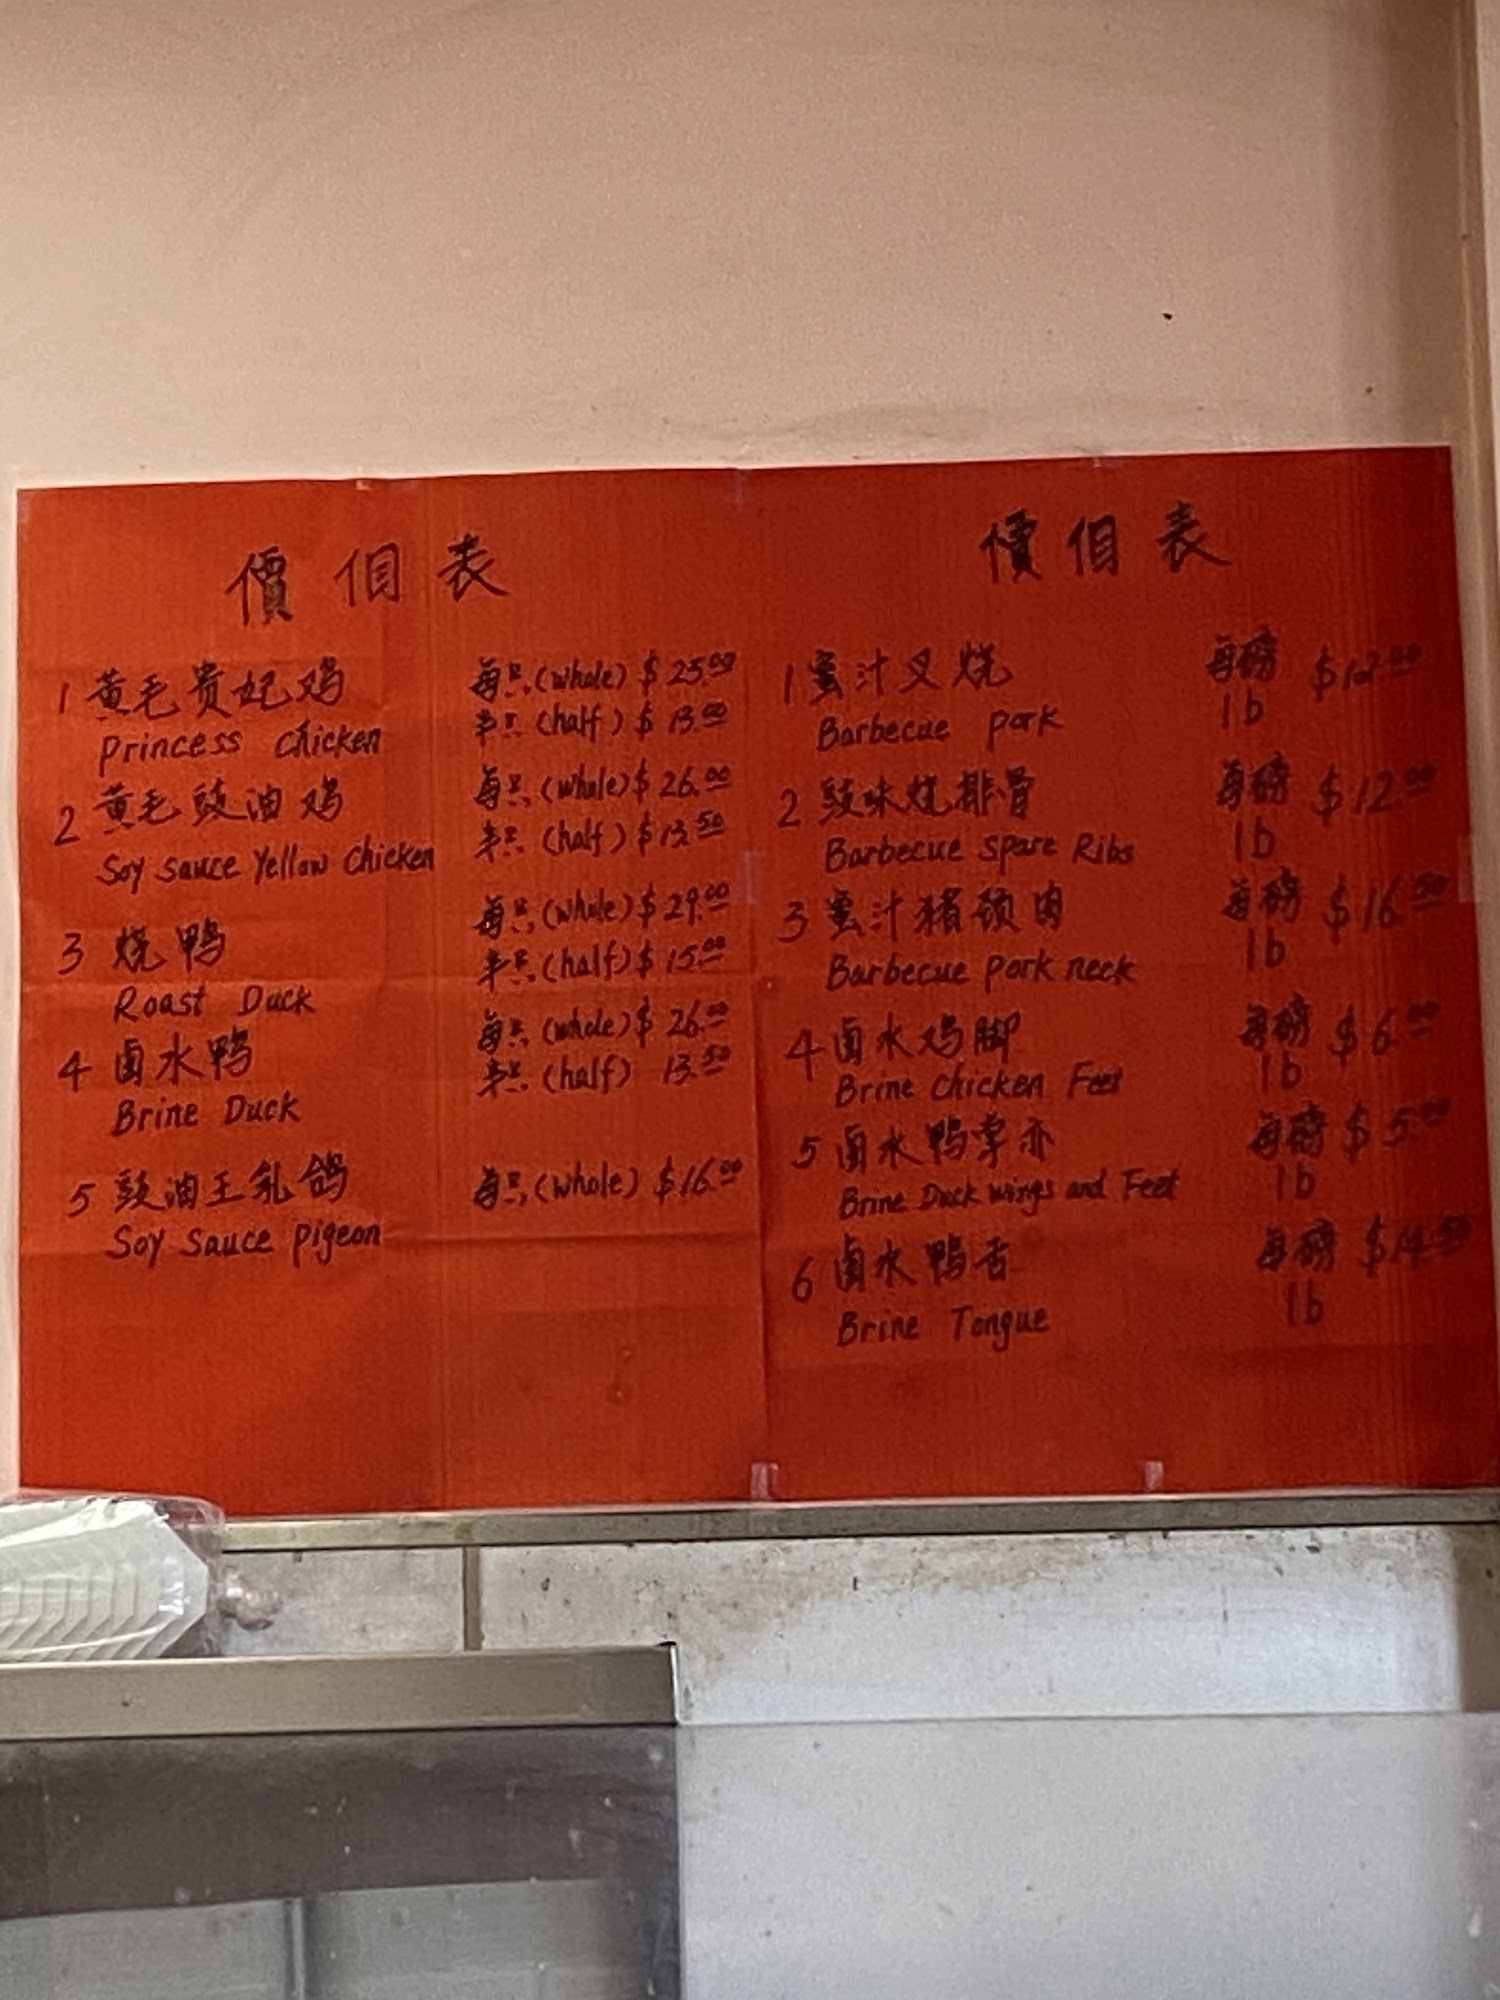 價佀表
1 黄毛贵妃鸡 每只(whole) $25.00
Princess chicken 半只(half) $13.00
2 黄毛豉油鸡 每只(whole) $26.00
Soy sauce Yellow chicken 半只(half) $13.50
3 烧鸭 每只(whole) $29.00
Roast Duck 半只(half) $15.00
4 卤水鸭 每只(whole) $26.00
Brine Duck 半只(half) 13.50
5 豉油王乳鸽 每只(whole) $16.00
Soy sauce pigeon
價佀表
1 蜜汁叉烧 每磅 $12.00
Barbecue pork 1b
2 豉味烧排骨 每磅 $12.00
Barbecue Spare Ribs 1b
3 蜜汁猪颈肉 每磅 $16.50
Barbecue pork neck 1b
4 卤水鸡脚 每磅 $6.00
Brine Chicken Feet 1b
5 卤水鸭掌亦 每磅 $5.00
Brine Duck wings and Feet 1b
6 卤水鸭舌 每磅 $14.50
Brine Tongue 1b